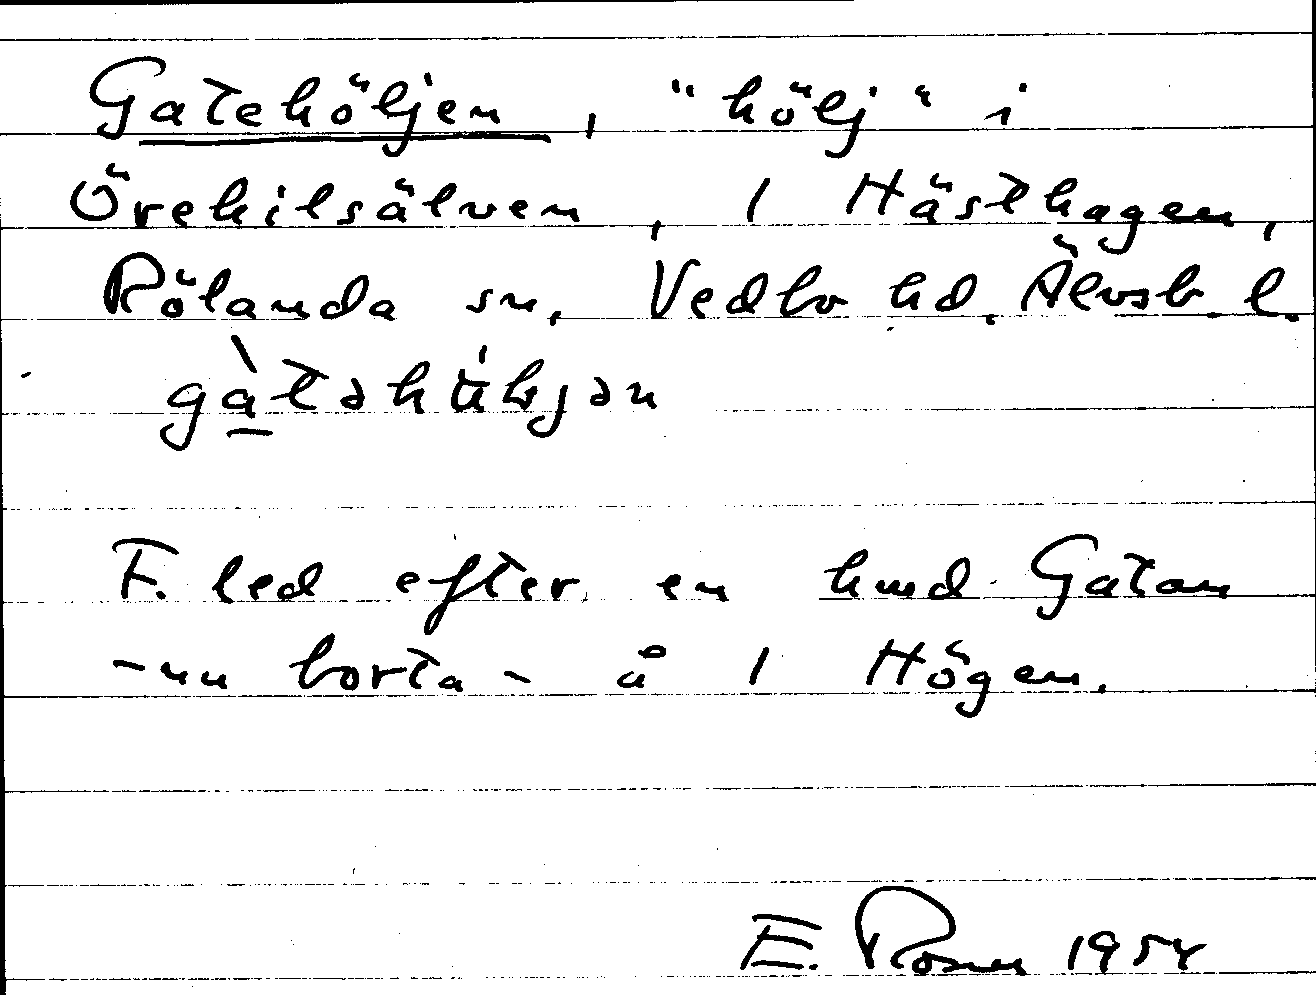 Gatehöljen, "hölj" i
Örekilsälven, 1 Hästhagen,
Rölanda sn, Vedbo hd. Älvsb. l.
F. led efter en hmd Gatan
- nu borta - å 1 Högen.
E. Rosner 1954